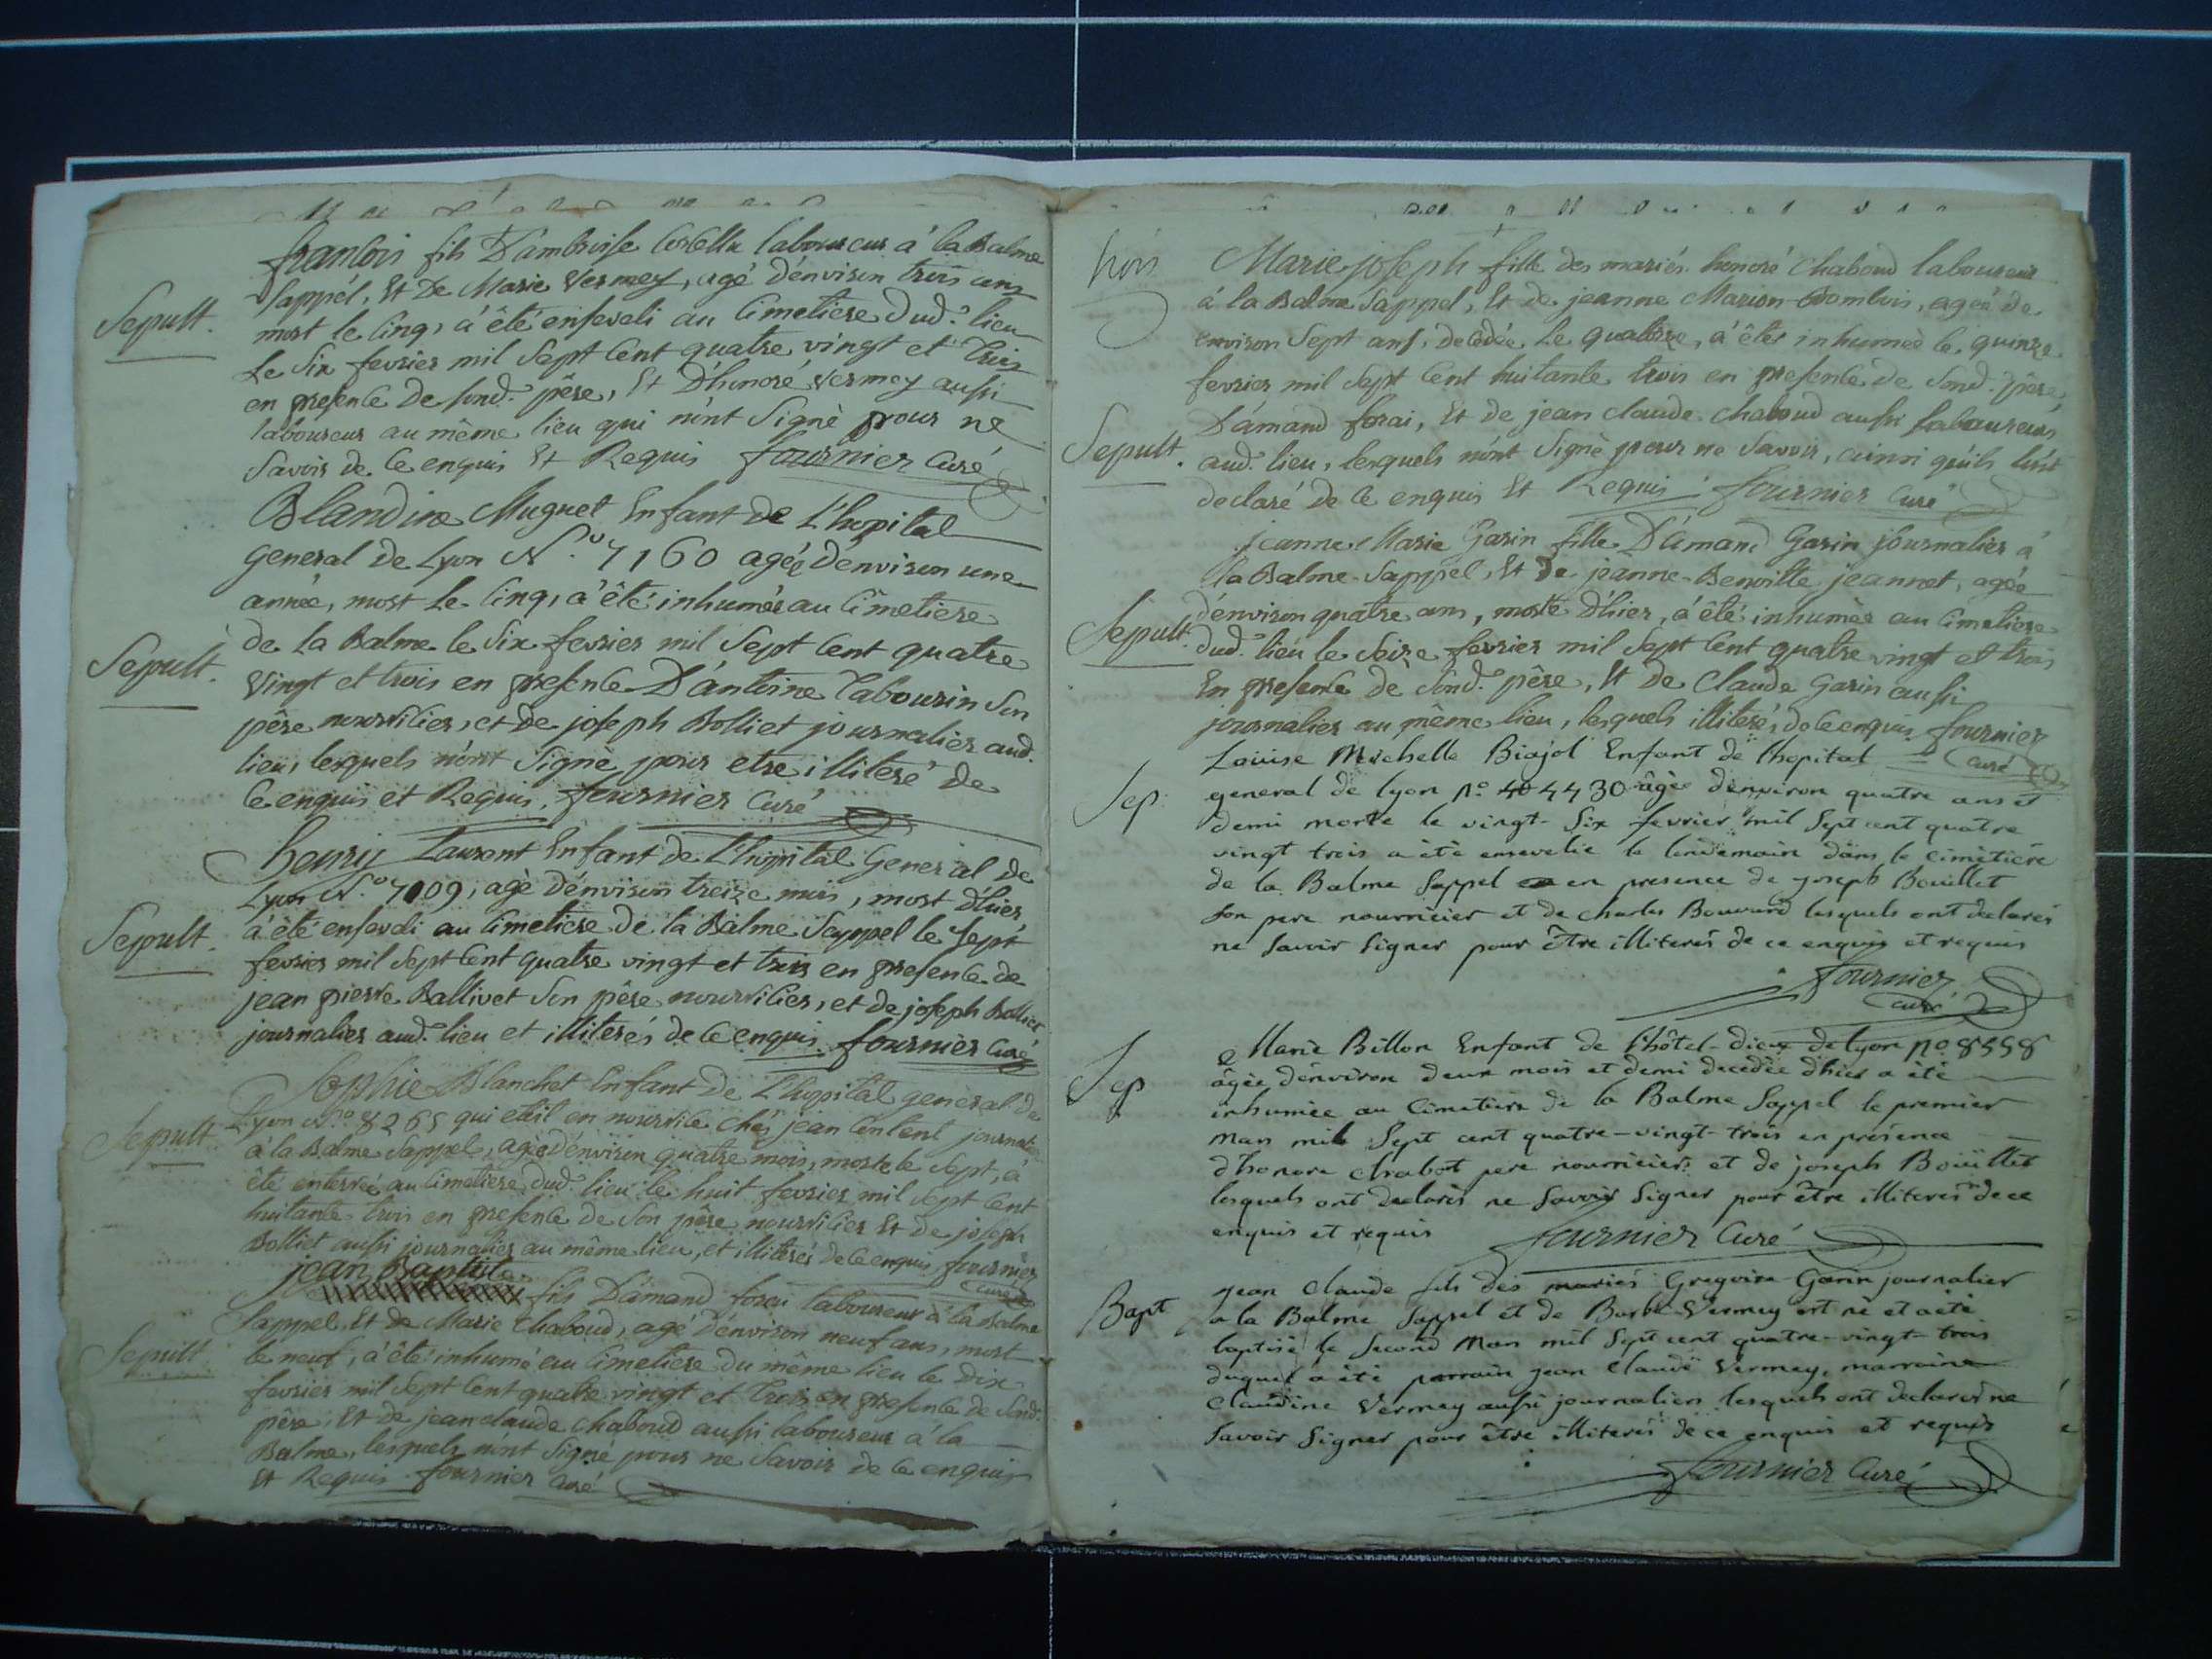 francois fils D'ambroise Corbella laboureur á la Balme
Sappel, Et De Marie Vermey, agé d'environ trois ans
Sepult.
mort le Cinq, á été enseveli au Cimetiere dud.t lieu
le Six fevrier mil Sept Cent quatre vingt et trois
en presence de sond. père, Et D'honoré Vermey aussi
laboureur au même lieu qui n'ont Signé pour ne
Savoir de ce enquis Et Requis fournier Curé
Blandine Muguet Enfant de L'hopital
General de Lyon N.o 7160 agée d'environ une
année, mort le Cinq, á été inhumée au Cimetiere
de la Balme le Six fevrier mil Sept Cent quatre
Sepult.
vingt et trois en presence D'antoine Tabourin Son
père nourricier, et de joseph Bolliet journalier aud.
lieu, lesquels n'ont Signé pour etre illiteré de
ce enquis et Requis, fournier Curé
henry Laurent Enfant de L'hopital General de
Lyon N.o 7109, agé d'environ treize mois, mort d'hier,
Sepult.
á été enseveli au Cimetiere de la Balme Sappel le Sept
fevrier mil Sept Cent quatre vingt et trois en presence de
jean pierre Ballivet Son père nourricier, et de joseph Bolliet
journalier aud. lieu et illiterés de ce enquis fournier Curé
Sophie Blanchet Enfant de L'hopital general de
Sepult.
Lyon N.o 8265 qui etoit en nourrice chés jean
á la Balme Sappel, agée d'environ quatre mois, morte le Sept, á
été enterrée au Cimetiere dud. lieu le huit fevrier mil Sept Cent
huitante trois en presence de Son père nourricier Et de joseph
Bolliet aussi journalier au même lieu, et illiterés de ce enquis fournier
Curé
jean Baptiste
fils D'amand forai laboureur á la Balme
Sappel, Et de Marie Chaboud, agé d'environ neuf ans, mort
Sepult.
le neuf, á été inhumé au Cimetiere du même lieu le dix
fevrier mil Sept Cent quatre vingt et trois en presence de Sond.
père, Et de jean claude Chaboud aussi laboureur á la
Balme, lesquels n'ont Signé pour ne Savoir de ce enquis
Et Requis fournier Curé
trois
Marie joseph fille des mariés honoré Chaboud laboureur
á la Balme Sappel, Et de jeanne Marion, ageé de
environ Sept ans, decedée le quatorze, á êté inhumeé le quinze
fevrier mil Sept Cent huitante trois en presence de Sond. père
D'amand forai, Et de jean claude Chaboud aussi laboureurs
Sepult.
aud. lieu, lesquels n'ont Signé pour ne Savoir, ainsi qu'ils l'ont
declaré de ce enquis Et Requis fournier Curé
jeanne Marie Garin fille D'amand Garin journalier á
la Balme-Sappel, Et de jeanne-Benoitte jeannet, agée
Sepult.
d'environ quatre ans, morte D'hier, á été inhumée au Cimetiere
dud. lieu le Seize fevrier mil Sept Cent quatre vingt et trois
En presence de Sond. père, Et De Claude Garin aussi
journalier au même lieu, lesquels illiterés de ce enquis fournier
Curé
Louise Michelle Biajol Enfant de l'hopital
Sep
general de lyon n.o 44430 âgée d'environ quatre ans et
demi morte le vingt-Six fevrier mil Sept cent quatre
vingt trois a été ensevelie le lendemain dans le cimétiére
de la Balme Sappel en presence de joseph Bouillet
Son pere nourricier et de charles Bouvard lesquels ont declarés
ne Savoir Signer pour être illiterés de ce enquis et requis
fournier
curé
Sep
Marie Billon Enfant de l'hôtel-dieu de lyon n.o 8558
âgée d'environ deux mois et demi decedée d'hier a été
inhumée au Cimetiere de la Balme Sappel le premier
Mars mil Sept cent quatre-vingt-trois en présence
d'honore chabot pere nourricier et de joseph Bouillet
lesquels ont declarés ne Savoir Signer pour être illiterés de ce
enquis et requis fournier Curé
Bapt
jean Claude fils des mariés Gregoire Garin journalier
a la Balme Sappel et de Barbe Vermey est né et a été
baptisé le Second Mars mil Sept cent quatre-vingt-trois
duquel a été parrain jean Claude Vermey, marraine
Claudine Vermey aussi journaliers lesquels ont declarés ne
Savoir Signer pour être illiterés de ce enquis et requis
fournier Curé